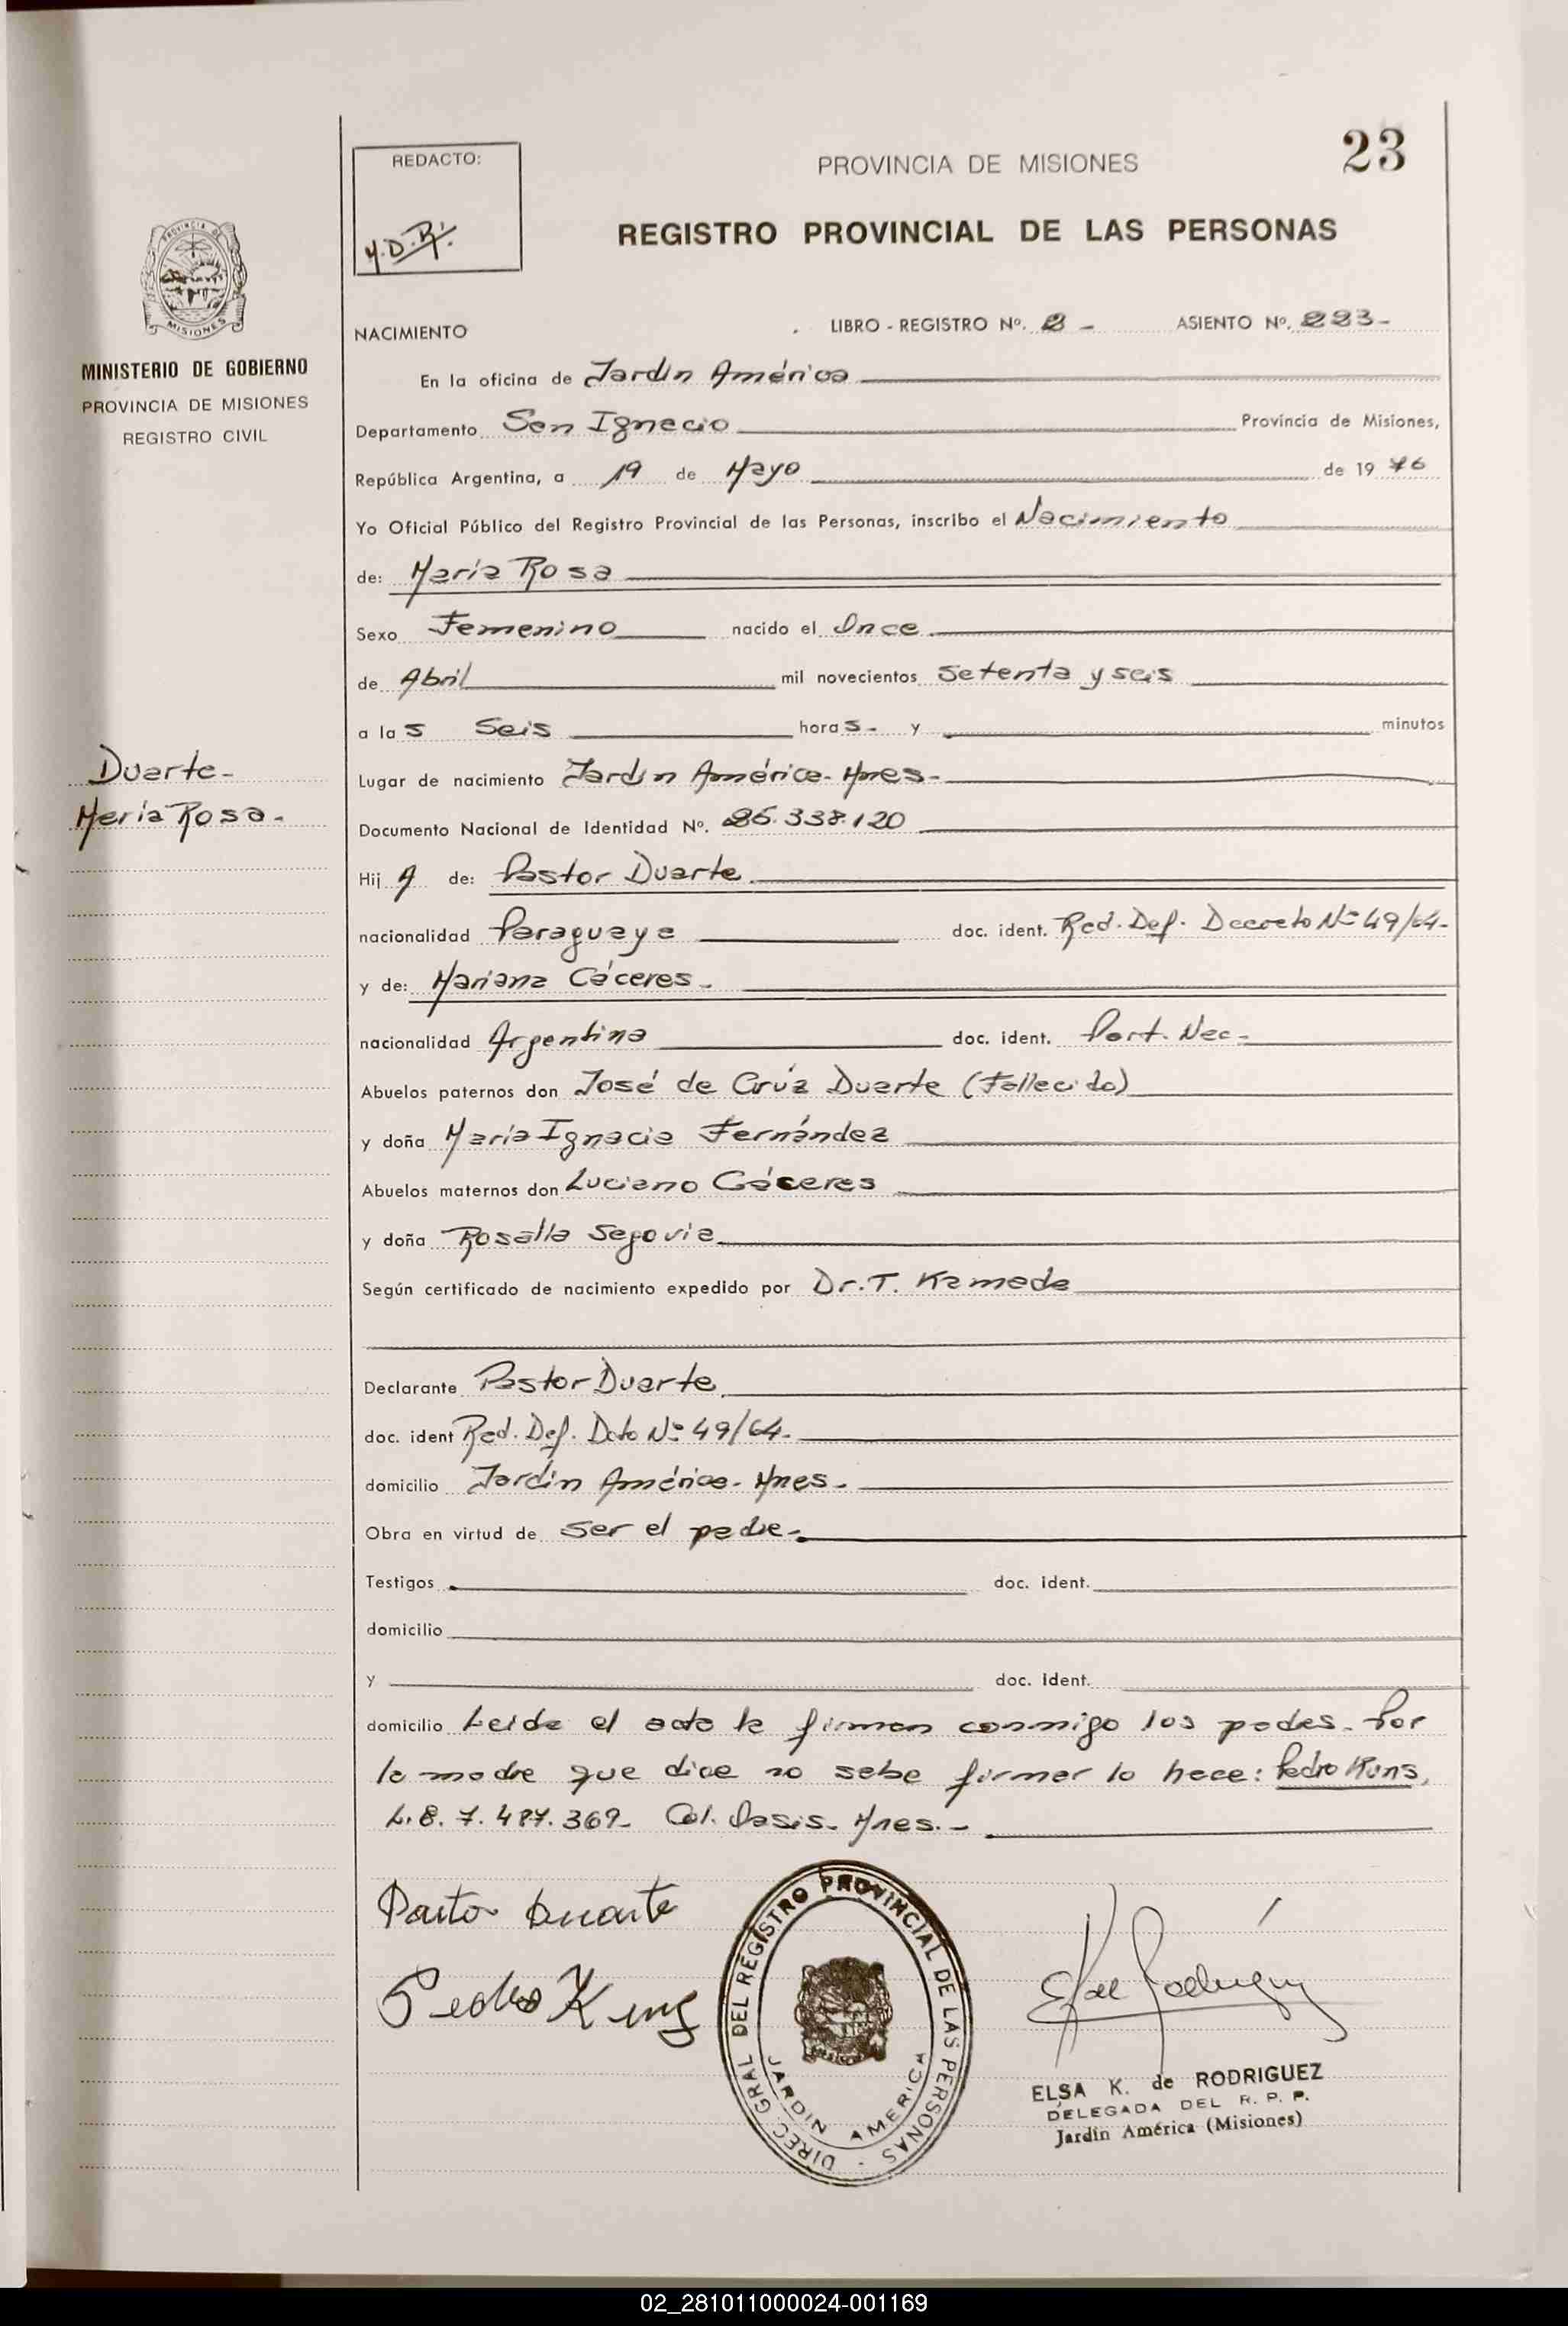 23
REDACTO:
PROVINCIA DE MISIONES
REGISTRO PROVINCIAL DE LAS PERSONAS
PROVINCIA DE
MISIONES
MINISTERIO DE GOBIERNO
PROVINCIA DE MISIONES
REGISTRO CIVIL
NACIMIENTO LIBRO - REGISTRO Nº. 2 - ASIENTO Nº. 223-
En la oficina de Jardín América
Departamento San Ignacio Provincia de Misiones,
República Argentina, a 19 de Mayo de 1976
Yo Oficial Público del Registro Provincial de las Personas, inscribo el Nacimiento
de: María Rosa
Sexo Femenino nacido el Once
de Abril mil novecientos setenta y seis
a las Seis horas- y minutos
Duarte-
María Rosa-
Lugar de nacimiento Jardín América- Mnes-
Documento Nacional de Identidad Nº. 25.338.120
Hija de: Pastor Duarte
nacionalidad Paraguaya doc. ident. Red. Def. Decreto Nº 49/64-
y de: Mariana Cáceres-
nacionalidad Argentina doc. ident. Part. Nac-
Abuelos paternos don José de Crúz Duarte (Fallecido)
y doña María Ignacia Fernández
Abuelos maternos don Luciano Cáceres
y doña Rosalía Segovia
Según certificado de nacimiento expedido por Dr. T. Kamada
Declarante Pastor Duarte
doc. ident Red. Def. Dcto Nº 49/64-
domicilio Jardín América- Mnes-
Obra en virtud de ser el padre-
Testigos doc. ident.
domicilio
y doc. ident.
domicilio Leída el acta la firman conmigo los padres- Por
la madre que dice no sabe firmar lo hace: Pedro
7.487.369- Col. Oasis- Mnes.-
Pastor Duarte
Pedro
DIREC. GRAL DEL REGISTRO PROVINCIAL DE LAS PERSONAS -
JARDIN AMERICA
ELSA K. de RODRIGUEZ
DELEGADA DEL R. P. P.
Jardín América (Misiones)
02_281011000024-001169